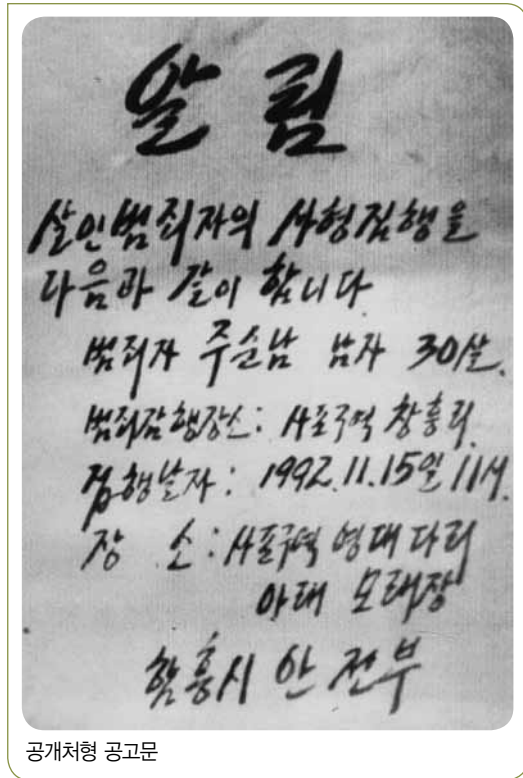 알 림
살인범죄자의 사형집행을
다음과 같이 합니다
범죄자 주순남 남자 30살.
범죄감행장소: 사포구역 창흥리.
집행날자: 1992.11.15일 11시.
장 소: 사포구역 영대다리
아래 모래장
함흥시 안전부
공개처형 공고문